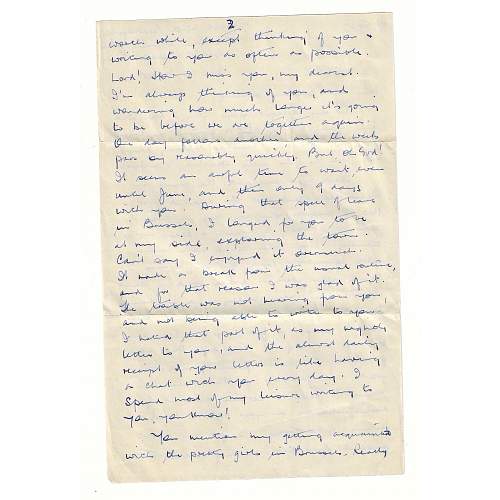 2
worth while, except thinking of you &
writing to you as often as possible.
Lord! How I miss you, my dearest.
I'm always thinking of you, and
wondering how much longer it's going
to be before we are together again.
One day follows another and the weeks
pass by reasonably quickly. But, oh God!
It seems an awful time to wait, even
until June, and then only 9 days
with you. During that spell of leave
in Brussels, I longed for you to be
at my side, exploring the town.
Can't say I enjoyed it overmuch.
It made a break from the normal routine,
and for that reason I was glad of it.
The trouble was not hearing from you,
and not being able to write to you.
I hated that part of it, as my nightly
letter to you, and the almost daily
receipt of your letter is like having
a chat with you every day. I
spend most of my leisure writing to
you, you know!
You mention my getting acquainted
with the pretty girls in Brussels. Really